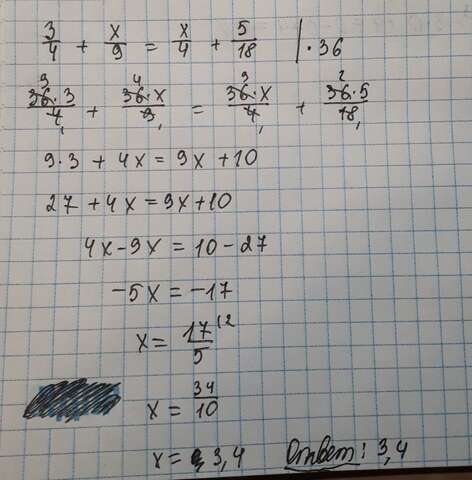 3/4 + x/9 = x/4 + 5/18 | · 36
36·3/4 + 36·x/9 = 36·x/4 + 36·5/18
9·3 + 4x = 9x + 10
27 + 4x = 9x + 10
4x - 9x = 10 - 27
-5x = -17
x = 17/5 (2
x = 34/10
x = 3,4 Ответ: 3,4